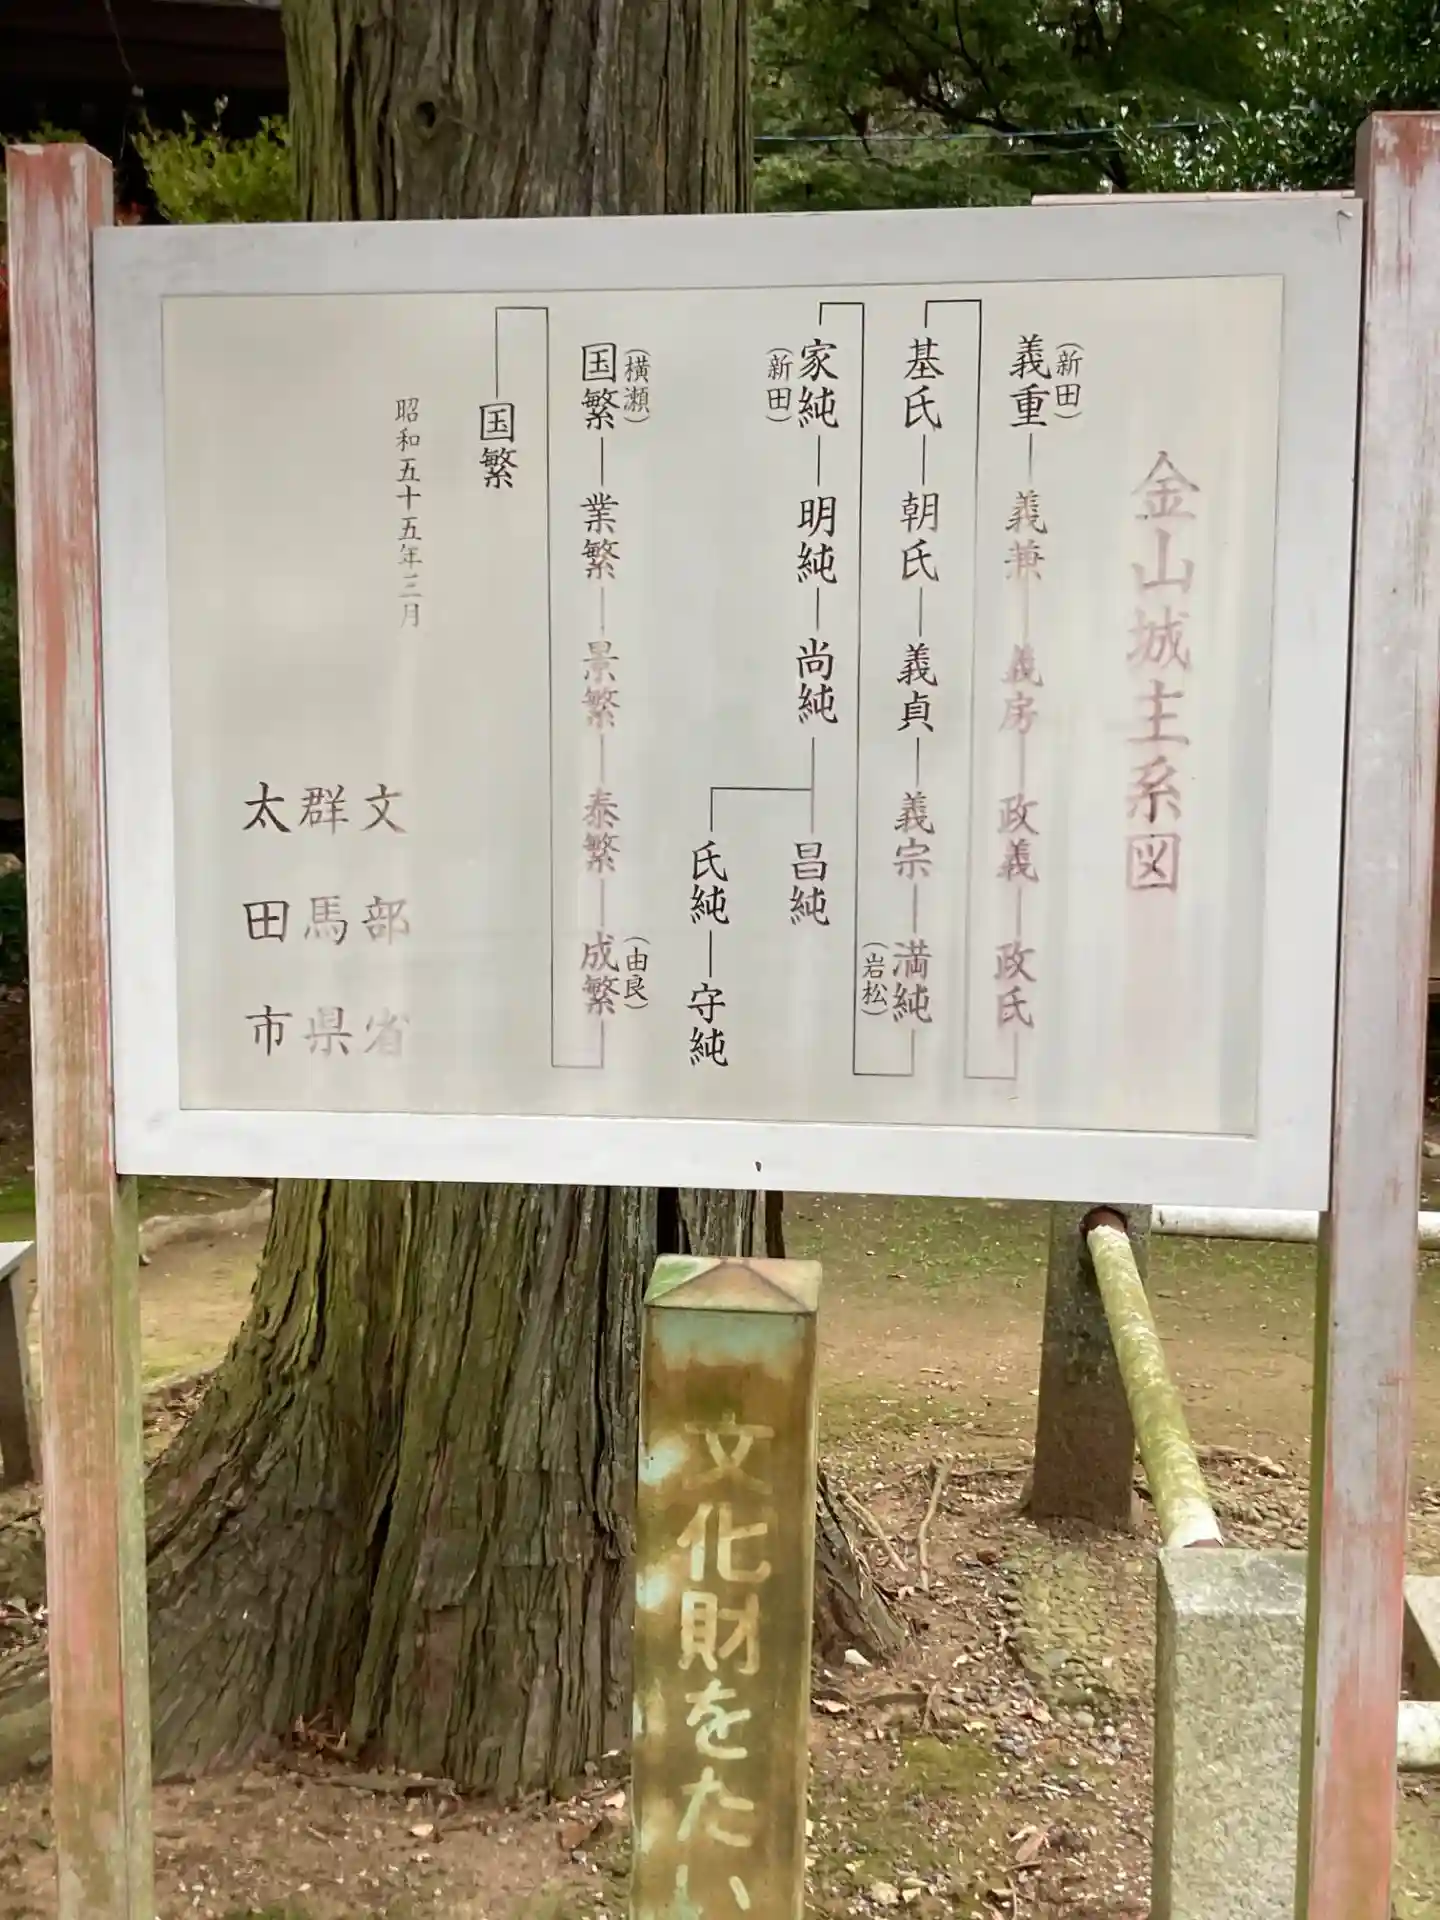 金山城主系図
(新田)
義重―義兼―義房―政義―政氏
基氏―朝氏―義貞―義宗―満純
(岩松)
家純―明純―尚純―昌純
(新田)
氏純―守純
(横瀬)
国繁―業繁―景繁―泰繁―成繁
(由良)
国繁
昭和五十五年三月
文部省
群馬県
太田市
文化財をたい